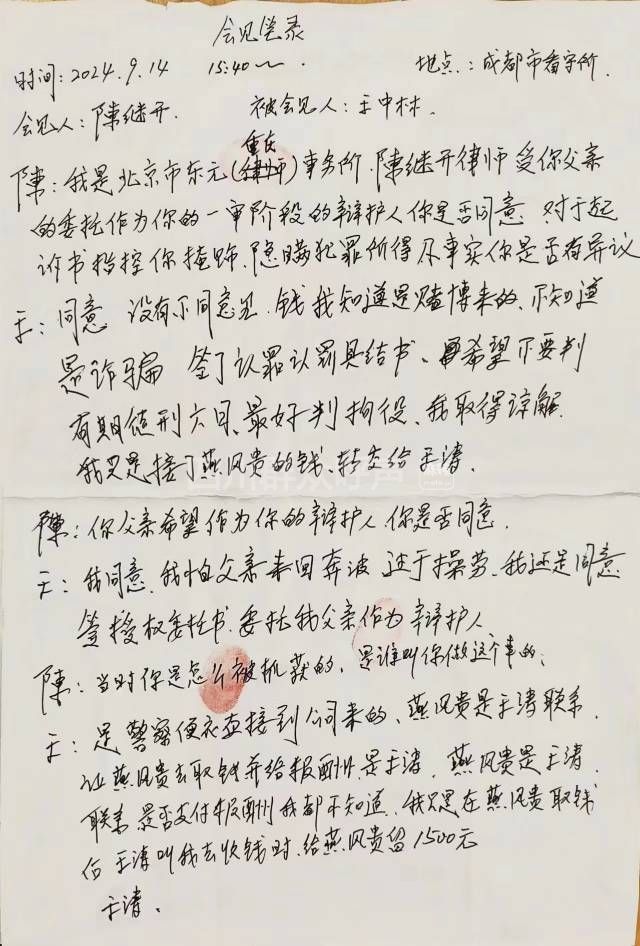 会见笔录
时间：2024.9.14 15:40～ 地点：成都市看守所.
会见人：陳继开. 被会见人：王中林.
重庆
陳：我是北京市东元(律师)事务所.陳继开律师 受你父亲
的委托作为你的一审阶段的辩护人你是否同意.对于起
诉书指控你掩饰、隐瞒犯罪所得及事实你是否有异议
王：同意 没有不同意见.钱我知道是赌博来的、不知道
是诈骗 签了认罪认罚具结书、希望不要判
有期徒刑六月、最好判拘役、我取得谅解.
我只是接了燕风贵的钱、转交给王涛.
陳：你父亲希望作为你的辩护人你是否同意.
王：我同意.我怕父亲来回奔波 过于操劳.我还是同意
签授权委托书.委托我父亲作为辩护人
陳：当时你是怎么被抓获的、是谁叫你做这个事的；
王：是警察便衣直接到公司来的、燕风贵是王涛联系.
让燕风贵去取钱并给报酬是王涛. 燕风贵是王涛.
联系 是否支付报酬我都不知道.我只是在燕风贵取钱
后 王涛叫我去收钱时.给燕风贵留1500元
王涛、